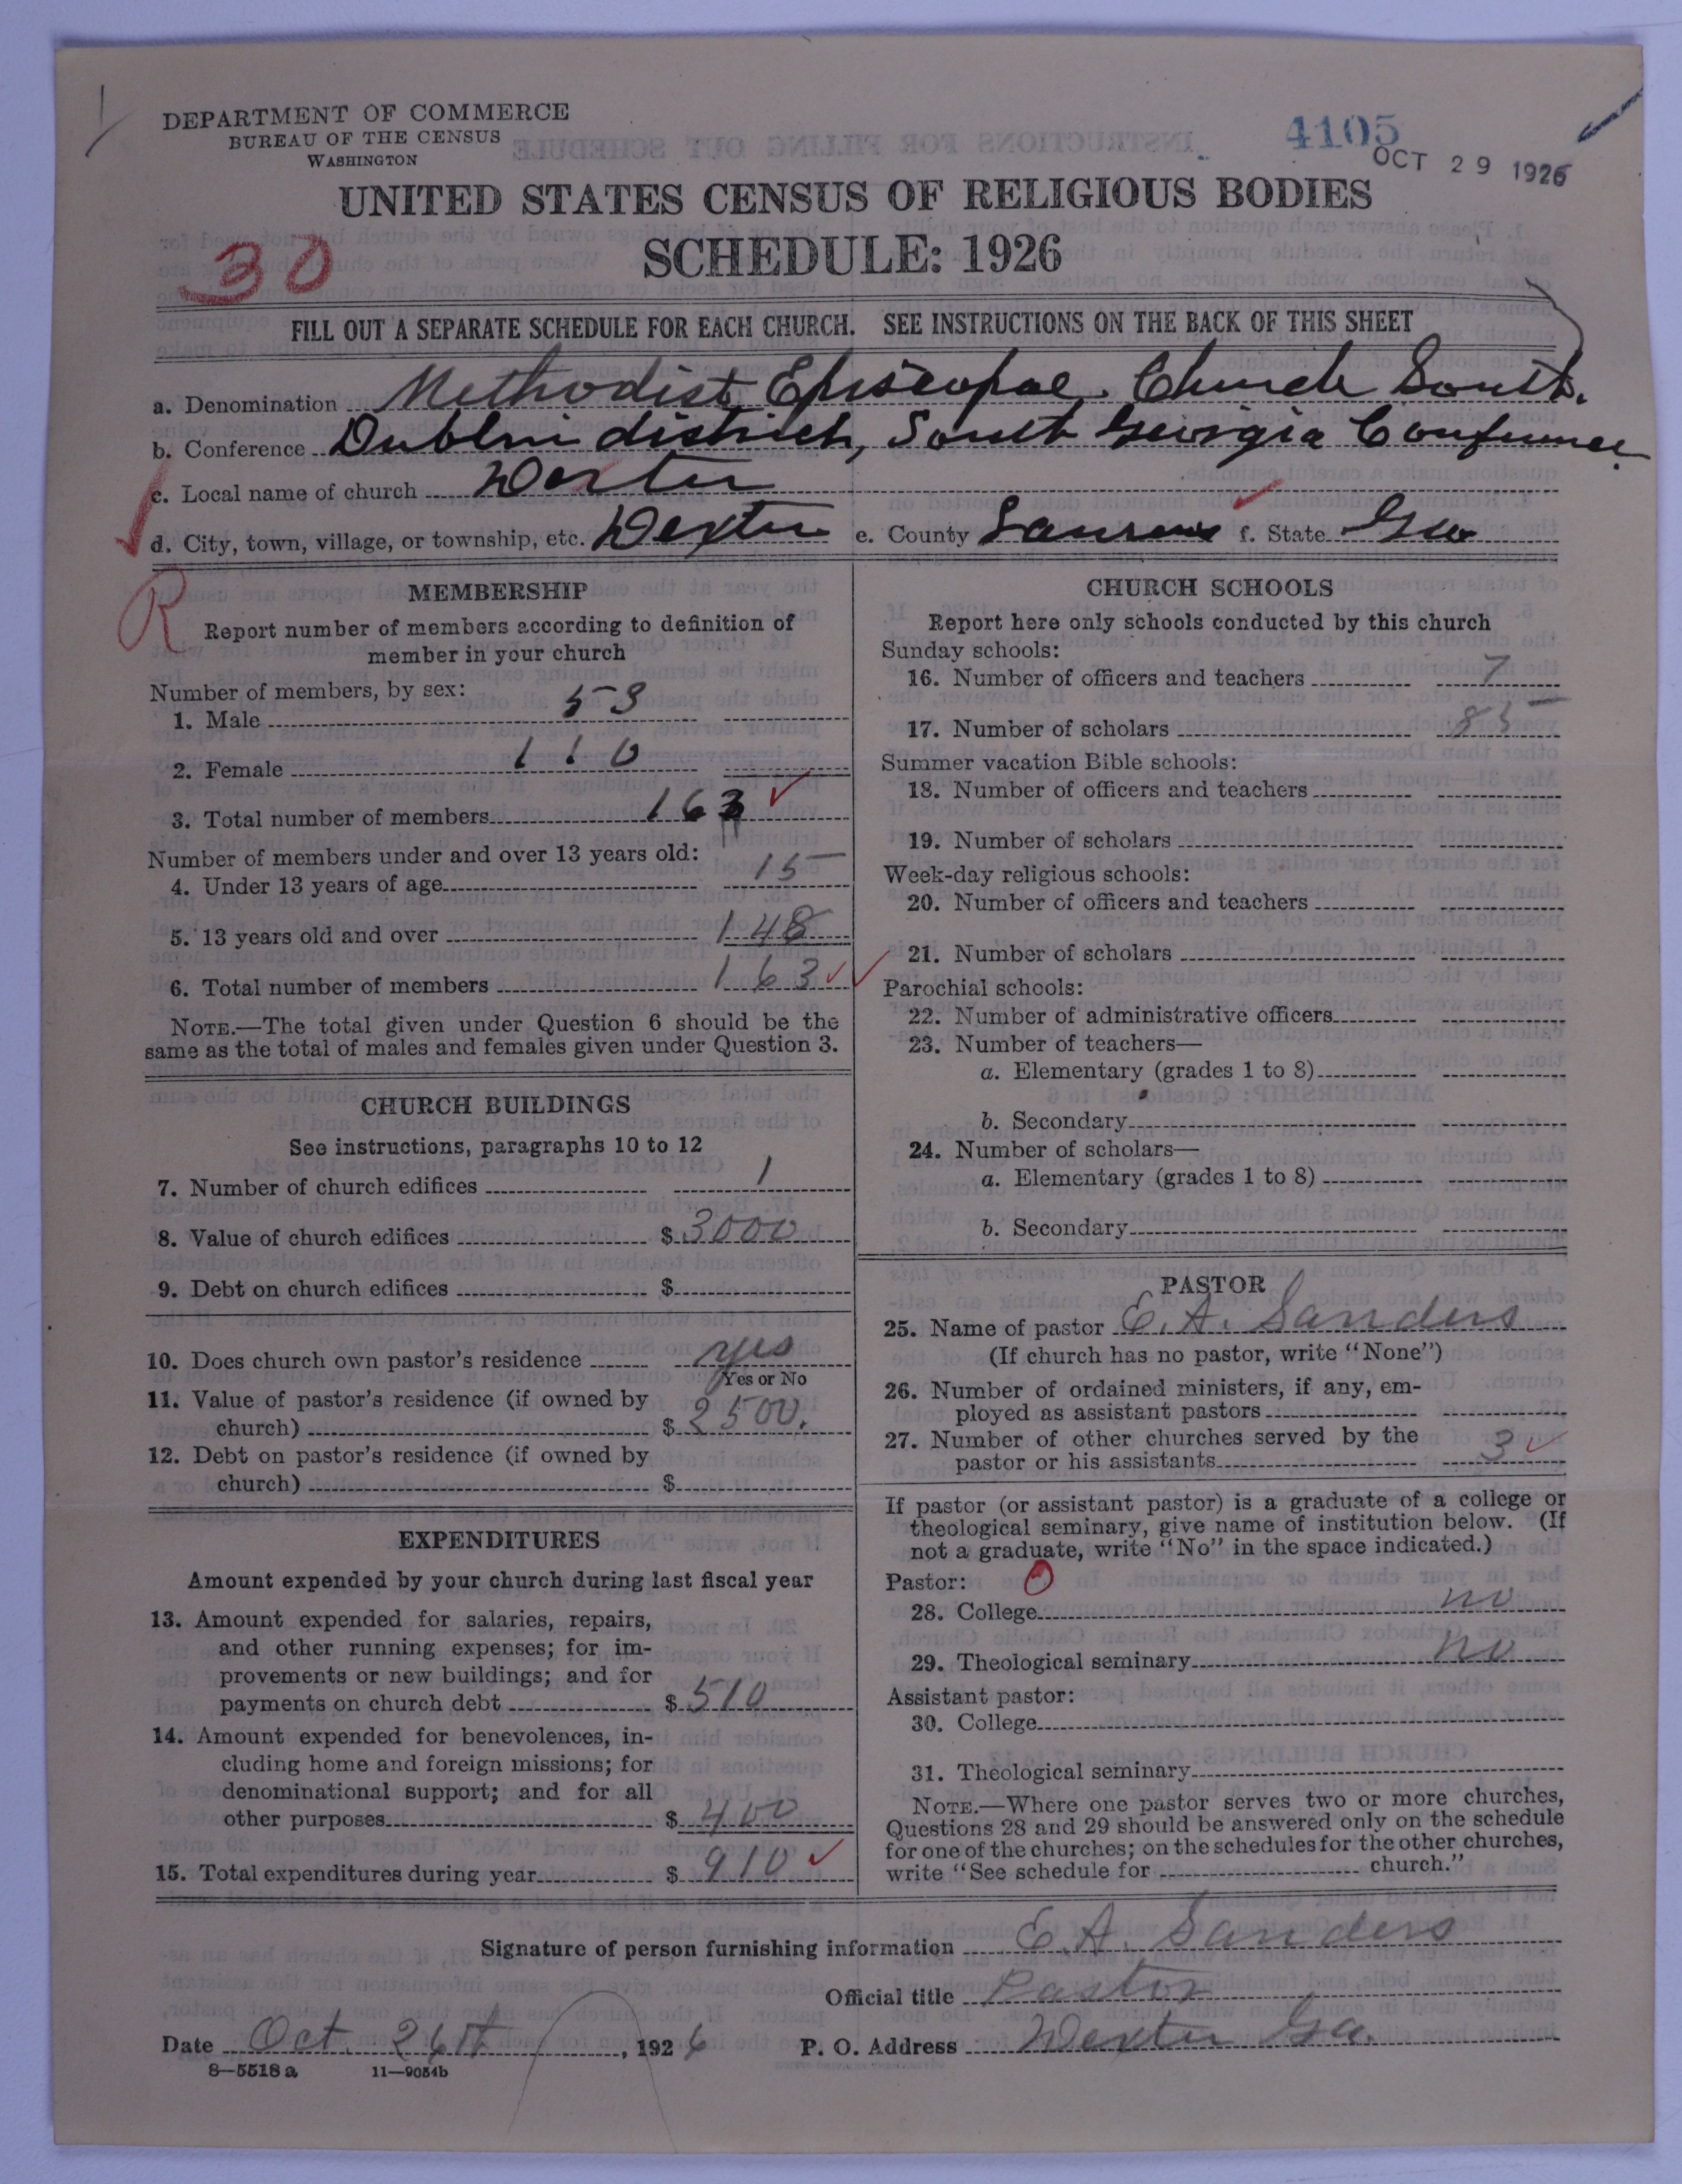 DEPARTMENT OF COMMERCE
BUREAU OF THE CENSUS
WASHINGTON
4105
OCT 29 1926
UNITED STATES CENSUS OF RELIGIOUS BODIES
SCHEDULE: 1926
30
FILL OUT A SEPARATE SCHEDULE FOR EACH CHURCH. SEE INSTRUCTIONS ON THE BACK OF THIS SHEET
a. Denomination Methodist Episcopal Church South.
b. Conference Dublin district, South Georgia Conference
c. Local name of church Dexter
d. City, town, village, or township, etc. Dexter e. County Laurens f. State Geo
R
MEMBERSHIP
Report number of members according to definition of
member in your church
Number of members, by sex:
1. Male 53
2. Female 110
3. Total number of members 163
Number of members under and over 13 years old:
4. Under 13 years of age 15
5. 13 years old and over 148
6. Total number of members 163
NOTE.—The total given under Question 6 should be the
same as the total of males and females given under Question 3.
CHURCH BUILDINGS
See instructions, paragraphs 10 to 12
7. Number of church edifices 1
8. Value of church edifices $ 3000
9. Debt on church edifices $
10. Does church own pastor's residence yes
Yes or No
11. Value of pastor's residence (if owned by
church) $ 2500.
12. Debt on pastor's residence (if owned by
church) $
EXPENDITURES
Amount expended by your church during last fiscal year
13. Amount expended for salaries, repairs,
and other running expenses; for im-
provements or new buildings; and for
payments on church debt $ 510
14. Amount expended for benevolences, in-
cluding home and foreign missions; for
denominational support; and for all
other purposes $ 400
15. Total expenditures during year $ 910
CHURCH SCHOOLS
Report here only schools conducted by this church
Sunday schools:
16. Number of officers and teachers 7
17. Number of scholars 85
Summer vacation Bible schools:
18. Number of officers and teachers
19. Number of scholars
Week-day religious schools:
20. Number of officers and teachers
21. Number of scholars
Parochial schools:
22. Number of administrative officers
23. Number of teachers—
a. Elementary (grades 1 to 8)
b. Secondary
24. Number of scholars—
a. Elementary (grades 1 to 8)
b. Secondary
PASTOR
25. Name of pastor E. A. Sanders
(If church has no pastor, write "None")
26. Number of ordained ministers, if any, em-
ployed as assistant pastors
27. Number of other churches served by the
pastor or his assistants 3
If pastor (or assistant pastor) is a graduate of a college or
theological seminary, give name of institution below. (If
not a graduate, write "No" in the space indicated.)
Pastor: O
28. College no
29. Theological seminary no
Assistant pastor:
30. College
31. Theological seminary
NOTE.—Where one pastor serves two or more churches,
Questions 28 and 29 should be answered only on the schedule
for one of the churches; on the schedules for the other churches,
write "See schedule for church."
Signature of person furnishing information E. A. Sanders
Official title Pastor
Date Oct. 26th, 1926 P. O. Address Dexter Ga.
8—5518 a 11—9054b